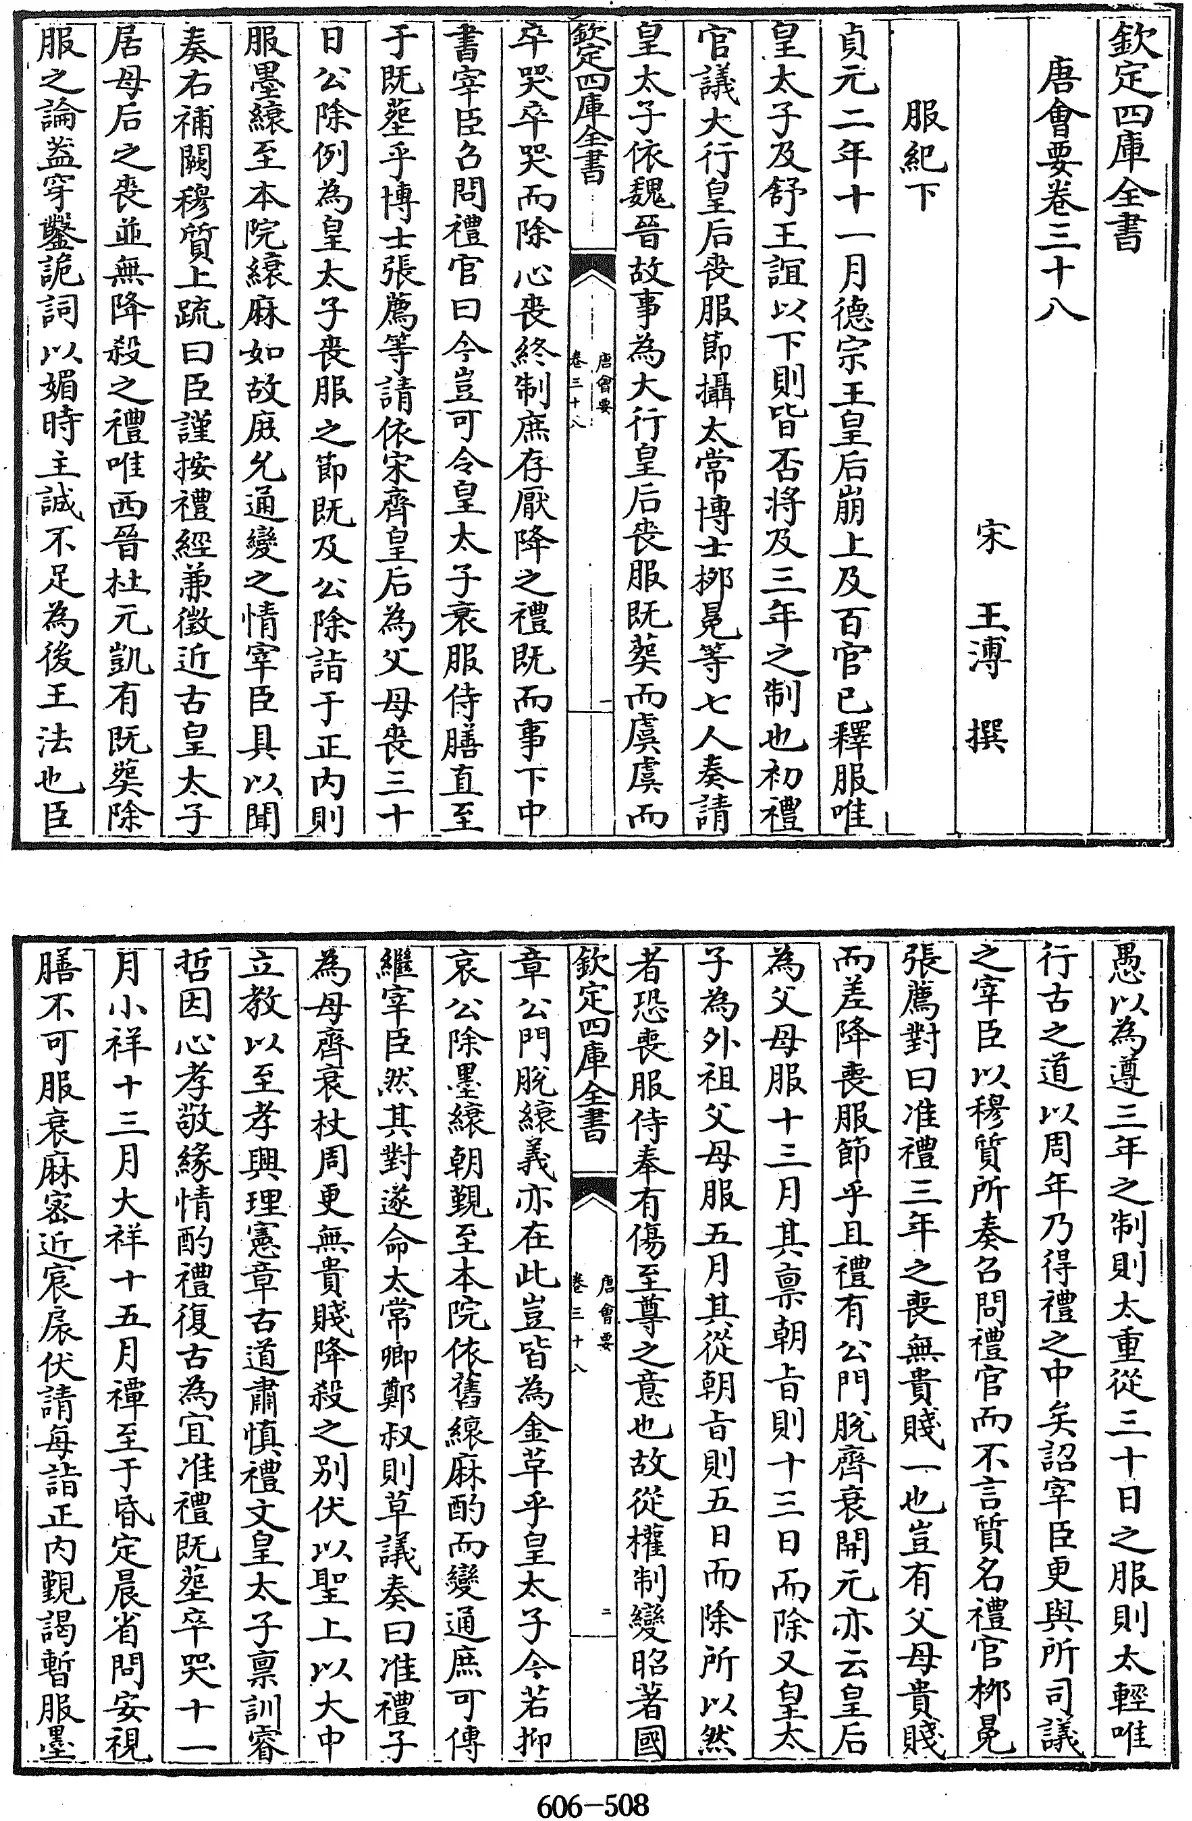 欽定四庫全書
唐會要卷三十八
宋 王溥 撰
服紀下
貞元二年十一月德宗王皇后崩上及百官已釋服唯
皇太子及舒王誼以下則皆否將及三年之制也初禮
官議大行皇后喪服節攝太常博士栁冕等七人奏請
皇太子依魏晉故事為大行皇后喪服既葬而虞虞而
欽定四庫全書
唐會要
卷三十八
一
卒哭卒哭而除心喪終制庶存厭降之禮既而事下中
書宰臣召問禮官曰今豈可令皇太子衰服侍膳直至
于既塟乎博士張薦等請依宋齊皇后為父母喪三十
日公除例為皇太子喪服之節既及公除詣于正内則
服墨縗至本院縗麻如故庻允通變之情宰臣具以聞
奏右補闕穆質上疏曰臣謹按禮經兼徵近古皇太子
居母后之喪並無降殺之禮唯西晉杜元凱有既葬除
服之論葢穿鑿詭詞以媚時主誠不足為後王法也臣
愚以為遵三年之制則太重從三十日之服則太輕唯
行古之道以周年乃得禮之中矣詔宰臣更與所司議
之宰臣以穆質所奏召問禮官而不言質名禮官栁冕
張薦對曰准禮三年之喪無貴賤一也豈有父母貴賤
而差降喪服節乎且禮有公門脱齊衰開元亦云皇后
為父母服十三月其禀朝㫖則十三日而除又皇太
子為外祖父母服五月其從朝㫖則五日而除所以然
者恐喪服侍奉有傷至尊之意也故從權制變昭著國
欽定四庫全書
唐會要
卷三十八
二
章公門脱縗義亦在此豈皆為金革乎皇太子今若抑
哀公除墨縗朝覲至本院依舊縗麻酌而變通庶可傳
繼宰臣然其對遂命太常卿鄭叔則草議奏曰准禮子
為母齊衰杖周更無貴賤降殺之别伏以聖上以大中
立教以至孝興理憲章古道肅慎禮文皇太子禀訓睿
哲因心孝敬緣情酌禮復古為宜准禮既塟卒哭十一
月小祥十三月大祥十五月禫至于昏定晨省問安視
膳不可服衰麻宻近宸扆伏請每詣正内覲謁暫服墨
606—508